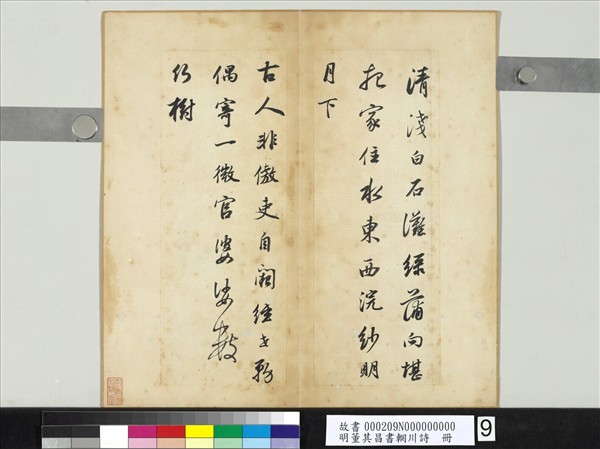 清淺白石灘綠蒲向堪
把家住水東西浣紗明
月下
古人非傲吏自闕經世務
偶寄一微官婆娑數
樹
故書 000209N000000000
明董其昌書輞川詩 冊
9